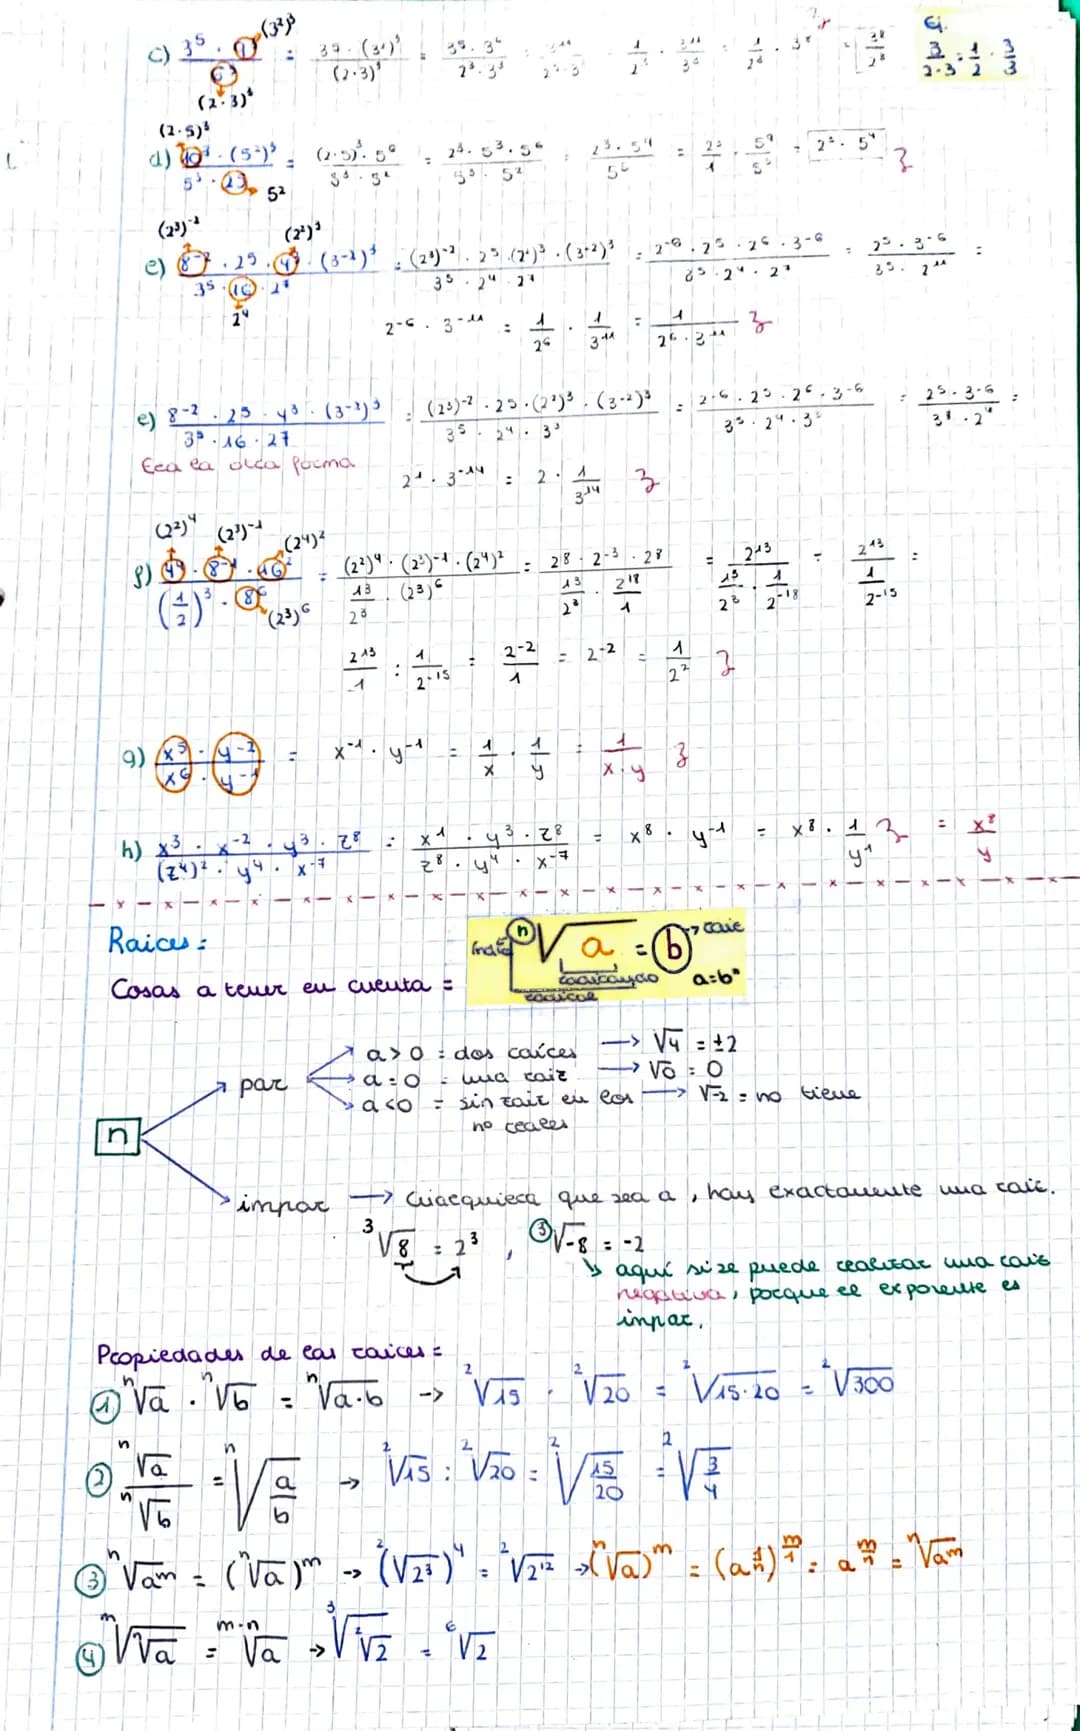 (3²)³
c) 3⁵ · 9³ / 6³ = 3⁵ · (3²)³ / (2·3)³ = 3⁵ · 3⁶ / 2³ · 3³ = 3¹¹ / 2³ · 3³ = 1/2³ · 3¹¹/3³ = 1/2³ · 3⁸ = 3⁸/2³
Ej. 3/2·3 = 1/2 · 3/3
(2·3)³
(2·5)³
d) 10³ · (5²)³ / 5³ · 25 = (2·5)³ · 5⁶ / 5³ · 5² = 2³ · 5³ · 5⁶ / 5³ · 5² = 2³ · 5⁹ / 5⁵ = 2³/1 · 5⁹/5⁵ = 2³ · 5⁴
5²
(2³)⁻² (2²)³
e) 8⁻² · 2⁵ · 4³ · (3⁻²)³ / 3⁵ · 16 · 2⁷ = (2³)⁻² · 2⁵ · (2²)³ · (3⁻²)³ / 3⁵ · 2⁴ · 2⁷ = 2⁻⁶ · 2⁵ · 2⁶ · 3⁻⁶ / 3⁵ · 2⁴ · 2⁷ = 2⁵ · 3⁻⁶ / 3⁵ · 2¹¹ =
2⁴
2⁻⁶ · 3⁻¹¹ = 1/2⁶ · 1/3¹¹ = 1 / 2⁶ · 3¹¹
e) 8⁻² · 2⁵ · 4³ · (3⁻²)³ / 3⁵ · 16 · 27 = (2³)⁻² · 2⁵ · (2²)³ · (3⁻²)³ / 3⁵ · 2⁴ · 3³ = 2⁻⁶ · 2⁵ · 2⁶ · 3⁻⁶ / 3⁵ · 2⁴ · 3³ = 2⁵ · 3⁻⁶ / 3⁸ · 2⁴ =
Era la otra forma
2¹ · 3⁻¹⁴ = 2 · 1/3¹⁴
(2²)⁴ (2³)⁻¹ (2⁴)²
f) 4⁴ · 8⁻¹ · 16² / (1/2)³ · 8⁶ = (2²)⁴ · (2³)⁻¹ · (2⁴)² / 1³/2³ · (2³)⁶ = 2⁸ · 2⁻³ · 2⁸ / 1³/2³ · 2¹⁸/1 = 2¹³ / 1³/2³ · 1/2⁻¹⁸ = 2¹³ / 1/2⁻¹⁵ =
(2³)⁶
2¹³/1 : 1/2⁻¹⁵ = 2⁻²/1 = 2⁻² = 1/2²
g) x⁵ · y⁻² / x⁶ · y⁻¹ = x⁻¹ · y⁻¹ = 1/x · 1/y = 1/x·y
h) x³ · x⁻² · y³ · z⁸ / (z⁴)² · y⁴ · x⁻⁷ = x¹ · y³ · z⁸ / z⁸ · y⁴ · x⁻⁷ = x⁸ · y⁻¹ = x⁸ · 1/y¹ = x⁸/y
Raices:
índice ⁿ√a = b → raíz
radicando a=bⁿ
radical
Cosas a tener en cuenta =
a > 0 = dos raíces → √4 = ±2
par a = 0 = una raiz → √0 = 0
a < 0 = sin raiz en los → √-2 = no tiene
nº reales
n
impar → Cualquiera que sea a, hay exactamente una raíz.
³√8 = 2³ , ³√-8 = -2
↳ aquí si se puede realizar una raiz
negativa, porque el exponente es
impar.
Propiedades de las raices =
① ⁿ√a · ⁿ√b = ⁿ√a·b → ²√15 · ²√20 = ²√15·20 = ²√300
② ⁿ√a / ⁿ√b = ⁿ√a/b → ²√15 : ²√20 = ²√15/20 = ²√3/4
③ ⁿ√aᵐ = (ⁿ√a)ᵐ → (²√2³)⁴ = ²√2¹² → (ⁿ√a)ᵐ = (a^1/n)^m/1 = a^m/n = ⁿ√aᵐ
④ ᵐ√ⁿ√a = ᵐ·ⁿ√a → ³√²√2 = ⁶√2